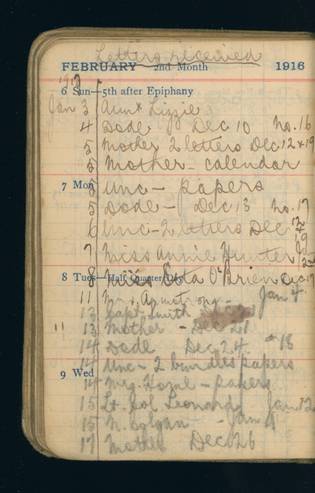 Letters received
FEBRUARY 2nd Month 1916
1917
6 Sun—5th after Epiphany
Jan 3 Aunt Lizzie
4 Dode Dec 10 No. 16
5 Mother 2 letters Dec 12 & 19
5 Mother - Calendar
7 Mon
5 Unc - papers
5 Dode - Dec 13 No. 17
6 Unc - 2 letters Dec
7 Miss Annie Hunter
8 Tues—Half Quarter Day
8 Miss O'Brien Dec
11 Mrs Armstrong - Jan 4
13 Capt. Smith
" 13 Mother - Dec 21
14 Dode Dec 24. # 18
14 Unc - 2 bundles papers
9 Wed
14 Mrs - papers
15 Lt. Col Leonard Jan 12
15 N. Colgan - Jan
17 Mother Dec 26